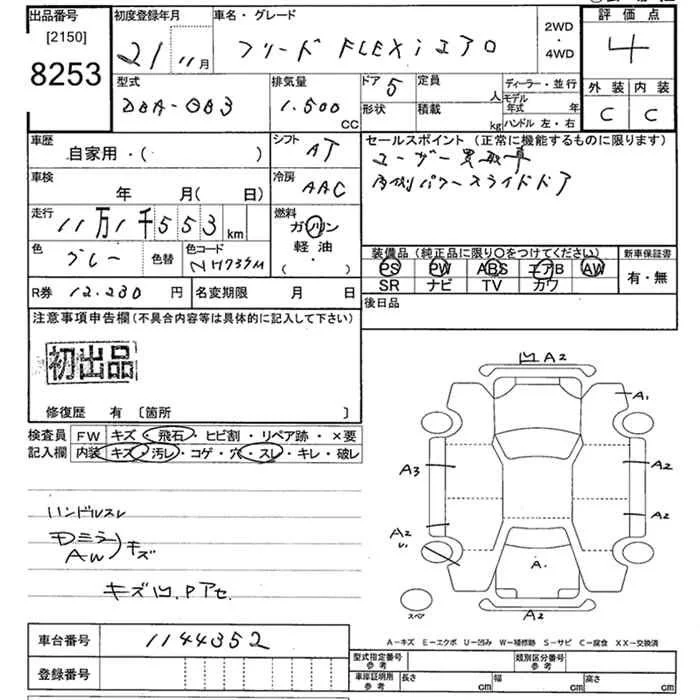 出品番号
[2150]
8253
初度登録年月
21 11月
車名・グレード
フリード FLEXiエアロ
2WD
・
4WD
評価点
4
型式
DBA-GB3
排気量
1.500
CC
ドア 5
形状
定員
人
積載
kg
ディーラー・並行
モデル
年式 年
ハンドル 左・右
外装
内装
C
C
車歴
自家用・( )
シフト
AT
セールスポイント (正常に機能するものに限ります)
ユーザー買取車
両側パワースライドドア
車検
年 月(日)
冷房
AAC
走行
11万1千553km
燃料
ガソリン
軽油
・( )
色
グレー
色替
色コード
NH737M
装備品 (純正品に限り○をつけてください)
PS PW ABS エアB AW
SR ナビ TV カワ
新車保証書
有・無
R券 12.230 円
名変期限 月 日
後日品
注意事項申告欄(不具合内容等は具体的に記入して下さい)
初出品
修復歴 有 〔箇所 〕
検査員
記入欄
FW キズ・飛石・ヒビ割・リペア跡・×要
内装 キズ・汚レ・コゲ・穴・スレ・キレ・破レ
ハンドルスレ
Dミラ
AW
キズ
キズ凹.Pアセ.
凹 A2
A1
A3
A2
A2
A2
U.
A.
スペア
A2
A-キズ E-エクボ U-凹み W-補修跡 S-サビ C-腐食 XX-交換済
車台番号
1144352
登録番号
型式指定番号
参考
類別区分番号
参考
車庫証明用
参考
長さ cm
幅 cm
高さ cm